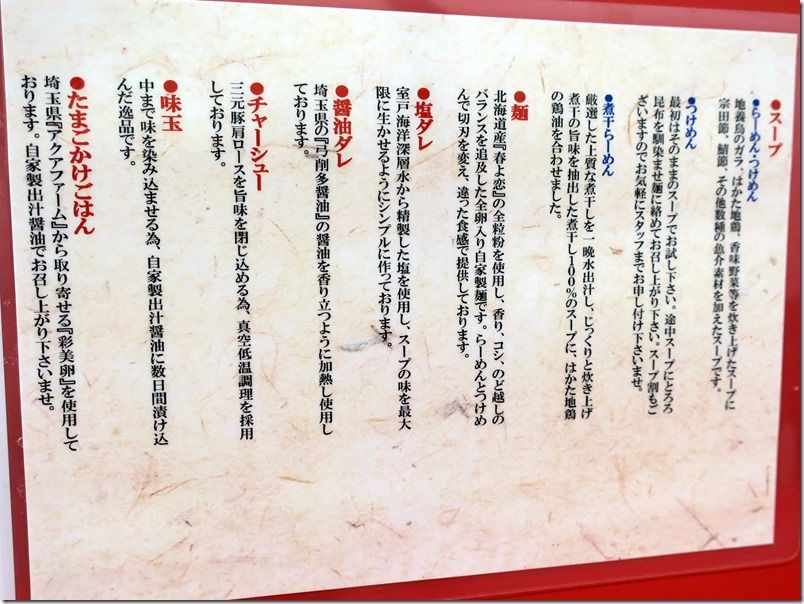 ●スープ
●らーめん・つけめん
地養鳥のガラ、はかた地鶏、香味野菜等を炊き上げたスープに
宗田節、鯖節、その他数種の魚介素材を加えたスープです。
●つけめん
最初はそのままのスープでお試し下さい。途中スープにとろろ
昆布を馴染ませ麺に絡めてお召し上がり下さい。スープ割もご
ざいますのでお気軽にスタッフまでお申し付け下さいませ。
●煮干らーめん
厳選した上質な煮干しを一晩水出汁し、じっくりと炊き上げ
煮干の旨味を抽出した煮干し100%のスープに、はかた地鶏
の鶏油を合わせました。
●麺
北海道産『春よ恋』の全粒粉を使用し、香り、コシ、のど越しの
バランスを追及した全卵入り自家製麺です。らーめんとつけめ
んで切刃を変え、違った食感で提供しております。
●塩ダレ
室戸海洋深層水から精製した塩を使用し、スープの味を最大
限に生かせるようにシンプルに作っております。
●醤油ダレ
埼玉県の『弓削多醤油』の醤油を香り立つように加熱し使用し
ております。
●チャーシュー
三元豚肩ロースを旨味を閉じ込める為、真空低温調理を採用
しております。
●味玉
中まで味を染み込ませる為、自家製出汁醤油に数日間漬け込
んだ逸品です。
●たまごかけごはん
埼玉県『アクアファーム』から取り寄せる『彩美卵』を使用して
おります。自家製出汁醤油でお召し上がり下さいませ。